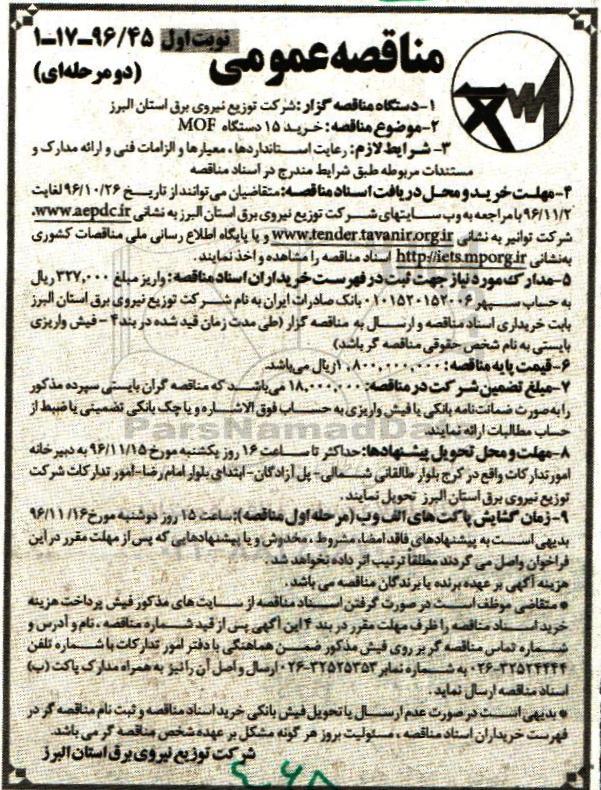 نوبت اول ۹۶/۴۵-۱۷-۱
مناقصه عمومی
(دو مرحله‌ای)
۱-دستگاه مناقصه گزار: شرکت توزیع نیروی برق استان البرز
۲-موضوع مناقصه: خرید ۱۵ دستگاه MOF
۳- شرایط لازم: رعایت استانداردها، معیارها و الزامات فنی و ارائه مدارک و
مستندات مربوطه طبق شرایط مندرج در اسناد مناقصه
۴-مهلت خرید و محل دریافت اسناد مناقصه: متقاضیان می‌توانند از تاریخ ۹۶/۱۰/۲۶ لغایت
۹۶/۱۱/۲ با مراجعه به وب سایتهای شرکت توزیع نیروی برق استان البرز به نشانی www.aepdc.ir،
شرکت توانیر به نشانی www.tender.tavanir.org.ir و یا پایگاه اطلاع رسانی ملی مناقصات کشوری
به‌نشانی http://iets.mporg.ir اسناد مناقصه را مشاهده و اخذ نمایند.
۵-مدارک مورد نیاز جهت ثبت در فهرست خریداران اسناد مناقصه: واریز مبلغ ۳۲۷,۰۰۰ ریال
به حساب سپهر ۰۱۰۱۵۲۰۱۵۲۰۰۶ بانک صادرات ایران به نام شرکت توزیع نیروی برق استان البرز
بابت خریداری اسناد مناقصه و ارسال به مناقصه گزار (طی مدت زمان قید شده در بند۴ - فیش واریزی
بایستی به نام شخص حقوقی مناقصه گر باشد)
۶-قیمت پایه مناقصه: ۱,۸۰۰,۰۰۰,۰۰۰ریال می‌باشد.
۷-مبلغ تضمین شرکت در مناقصه: ۱۸,۰۰۰,۰۰۰ می‌باشد که مناقصه گران بایستی سپرده مذکور
را به صورت ضمانت‌نامه بانکی یا فیش واریزی به حساب فوق الاشاره و یا چک بانکی تضمینی یا ضبط از
حساب مطالبات ارائه نمایند.
ParsNamadData
۸-مهلت و محل تحویل پیشنهادها: حداکثر تا ساعت ۱۶ روز یکشنبه مورخ ۹۶/۱۱/۱۵ به دبیرخانه
امور تدارکات واقع در کرج بلوار طالقانی شمالی- پل آزادگان- ابتدای بلوار امام رضا- امور تدارکات شرکت
توزیع نیروی برق استان البرز تحویل نمایند.
۹-زمان گشایش پاکت های الف و ب (مرحله اول مناقصه): ساعت ۱۵ روز دوشنبه مورخ ۹۶/۱۱/۱۶
بدیهی است به پیشنهادهای فاقد امضا، مشروط، مخدوش و یا پیشنهادهایی که پس از مهلت مقرر در این
فراخوان واصل می گردند مطلقاً ترتیب اثر داده نخواهد شد.
هزینه آگهی بر عهده برنده یا برندگان مناقصه می باشد.
* متقاضی موظف است در صورت گرفتن اسناد مناقصه از سایت های مذکور فیش پرداخت هزینه
خرید اسناد مناقصه را ظرف مهلت مقرر در بند ۴ این آگهی پس از قید شماره مناقصه، نام و آدرس و
شماره تماس مناقصه گر بر روی فیش مذکور ضمن هماهنگی با دفتر امور تدارکات با شماره تلفن
۰۲۶-۳۲۵۲۴۴۴۴ به شماره نمابر ۰۲۶-۳۲۵۲۵۳۵۳ ارسال و اصل آن را نیز به همراه مدارک پاکت (ب)
اسناد مناقصه ارسال نماید.
* بدیهی است در صورت عدم ارسال یا تحویل فیش بانکی خرید اسناد مناقصه و ثبت نام مناقصه گر در
فهرست خریداران اسناد مناقصه، مسئولیت بروز هر گونه مشکل بر عهده شخص مناقصه گر می باشد.
شرکت توزیع نیروی برق استان البرز